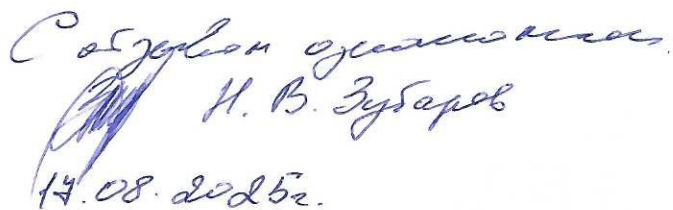 С отзывом ознакомлен.
Н. В. Зубарев
17.08.2025г.